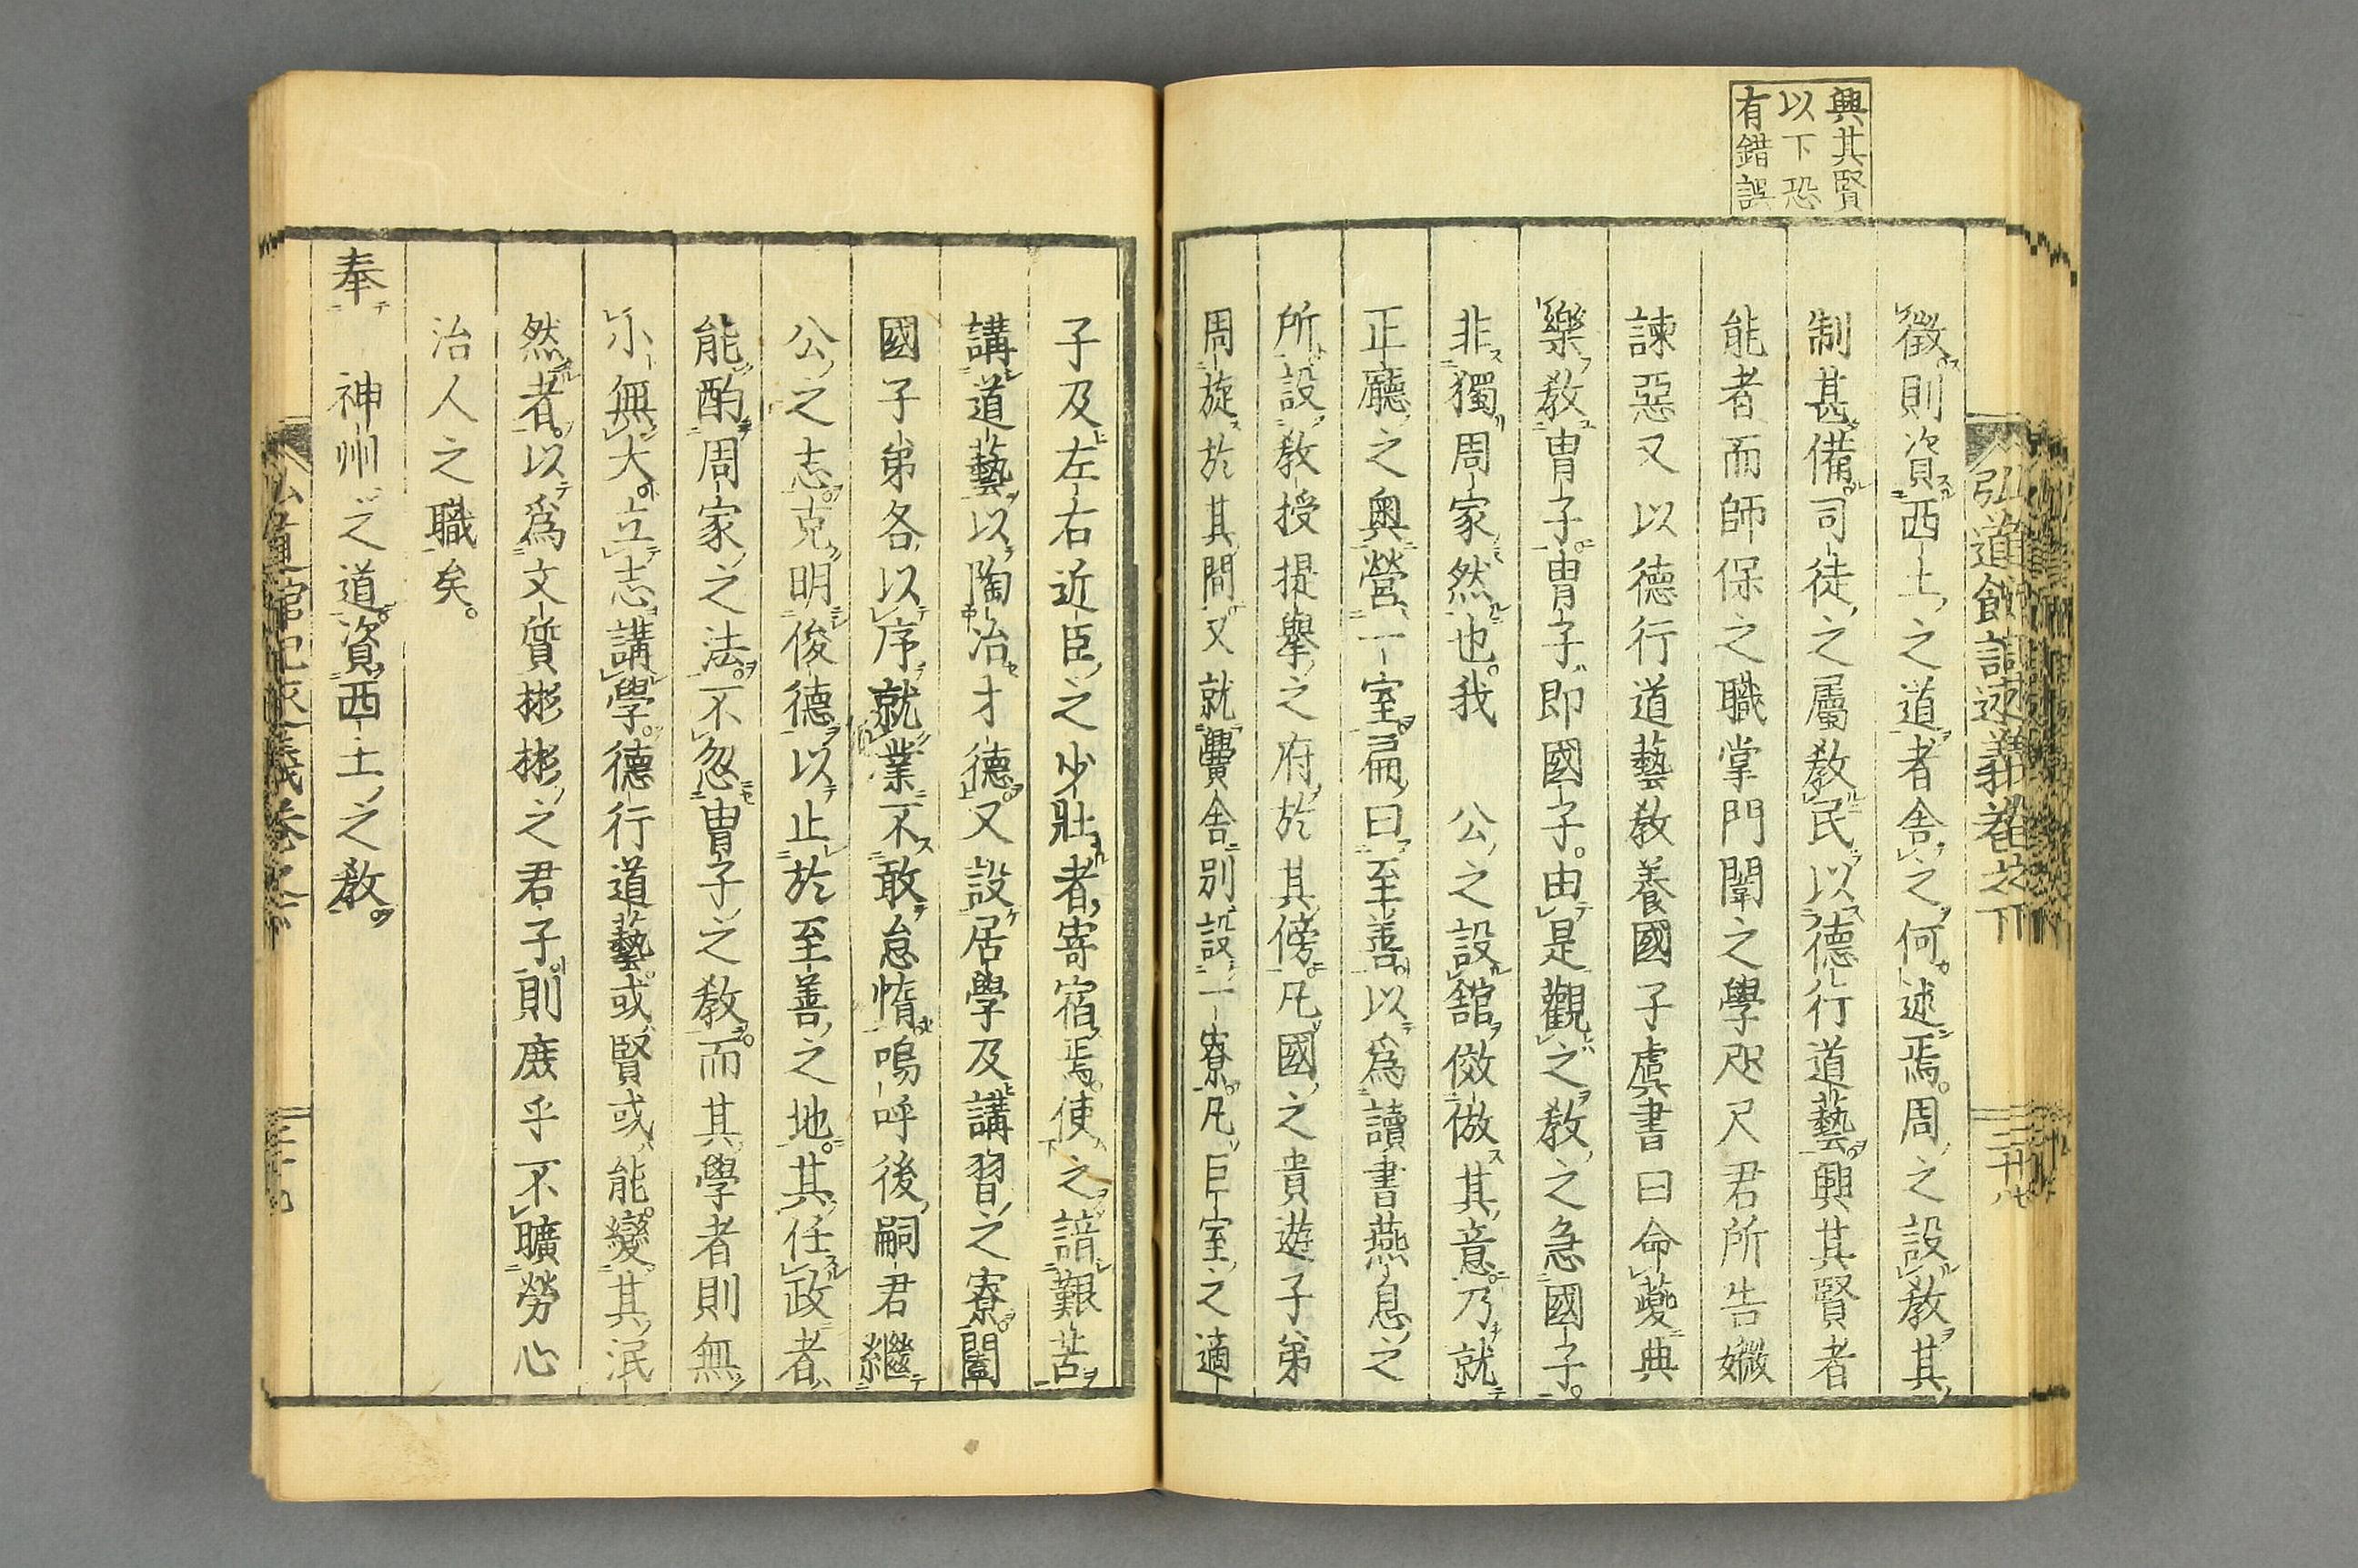 興其賢
以下恐
有錯誤
弘道館記述義卷之下
徵則資西土之道者舍之何述焉周之設教其
制甚備司徒之屬教民以德行道藝興其賢者
能者而師保之職掌門闈之學咫尺君所告媺
諫惡又以德行道藝教養國子虞書曰命夔典
樂教冑子冑子即國子由是觀之教之急國子
非獨周家然也我 公之設館傚倣其意乃就
正廳之奧營一室扁曰至善以爲讀書燕息之
所設教授提擧之府於其傍凡國之貴遊子弟
周旋於其間又就黌舍別設一寮凡巨室之適
子及左右近臣之少壯者寄宿焉使之諳艱苦
講道藝以陶冶才德又設居學及講習之寮闔
國子弟各以序就業不敢怠惰嗚呼後嗣君繼
公之志克明俊德以止於至善之地其任政者
能酌周家之法不忽冑子之教而其學者則無
小無大立志講學德行道藝或賢或能變其泯
然者以爲文質彬彬之君子則庶乎不曠勞心
治人之職矣。
奉 神州之道資西土之教